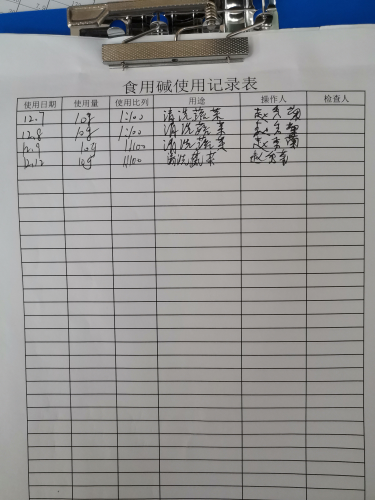 食用碱使用记录表
使用日期 使用量 使用比列 用途 操作人 检查人
12.7 10g 1:100 清洗蔬菜
12.8 10g 1:100 清洗蔬菜
12.9 10g 1:100 清洗蔬菜
12.12 10g 1:100 清洗蔬菜